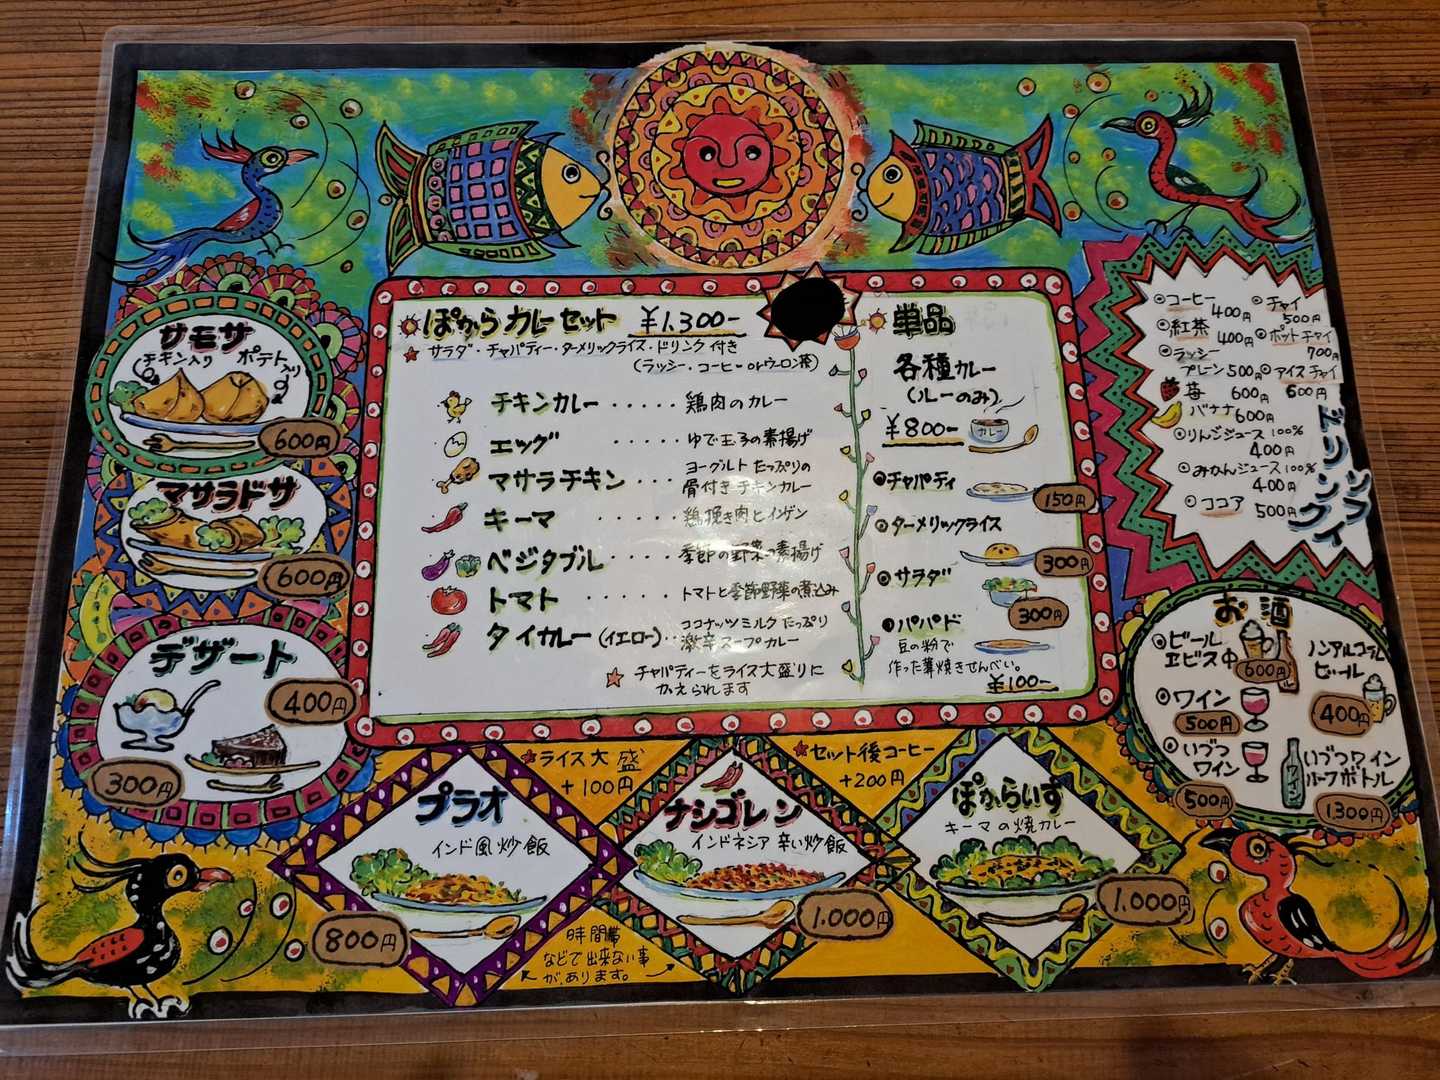 ぽからカレーセット ¥1.300-
サラダ・チャパティー・ターメリックライス・ドリンク付き
(ラッシー・コーヒーorウーロン茶)
チキンカレー ・・・・・ 鶏肉のカレー
エッグ ・・・・・ ゆで玉子の素揚げ
マサラチキン ・・・ ヨーグルトたっぷりの
骨付きチキンカレー
キーマ ・・・・・ 鶏挽き肉とインゲン
ベジタブル ・・・・ 季節の野菜の素揚げ
トマト ・・・・・・ トマトと季節野菜の煮込み
タイカレー(イエロー)・・ ココナッツミルクたっぷり
激辛スープカレー
チャパティーをライス大盛りに
かえられます
単品
各種カレー
(ルーのみ)
¥800-
カレー
チャパティ
150円
ターメリックライス
300円
サラダ
300円
パパド
豆の粉で
作った薄焼きせんべい。
¥100-
サモサ
(チキン入り ポテト入り)
600円
マサラドサ
600円
デザート
400円
300円
ドリンク
コーヒー
400円
紅茶
400円
ラッシー
プレーン 500円
苺 600円
バナナ 600円
りんごジュース 100%
400円
みかんジュース 100%
400円
ココア 500円
チャイ
500円
ポットチャイ
700円
アイスチャイ
600円
お酒
ビール
ヱビス中
600円
ノンアルコール
ビール
400円
ワイン
500円
いづつ
ワイン
500円
いづつワイン
ハーフボトル
ワイン
1.300円
ライス大盛
+100円
セット後コーヒー
+200円
プラオ
インド風炒飯
800円
ナシゴレン
インドネシア 辛い炒飯
1.000円
ぽからいす
キーマの焼カレー
1.000円
時間帯
などで出来ない事
があります。